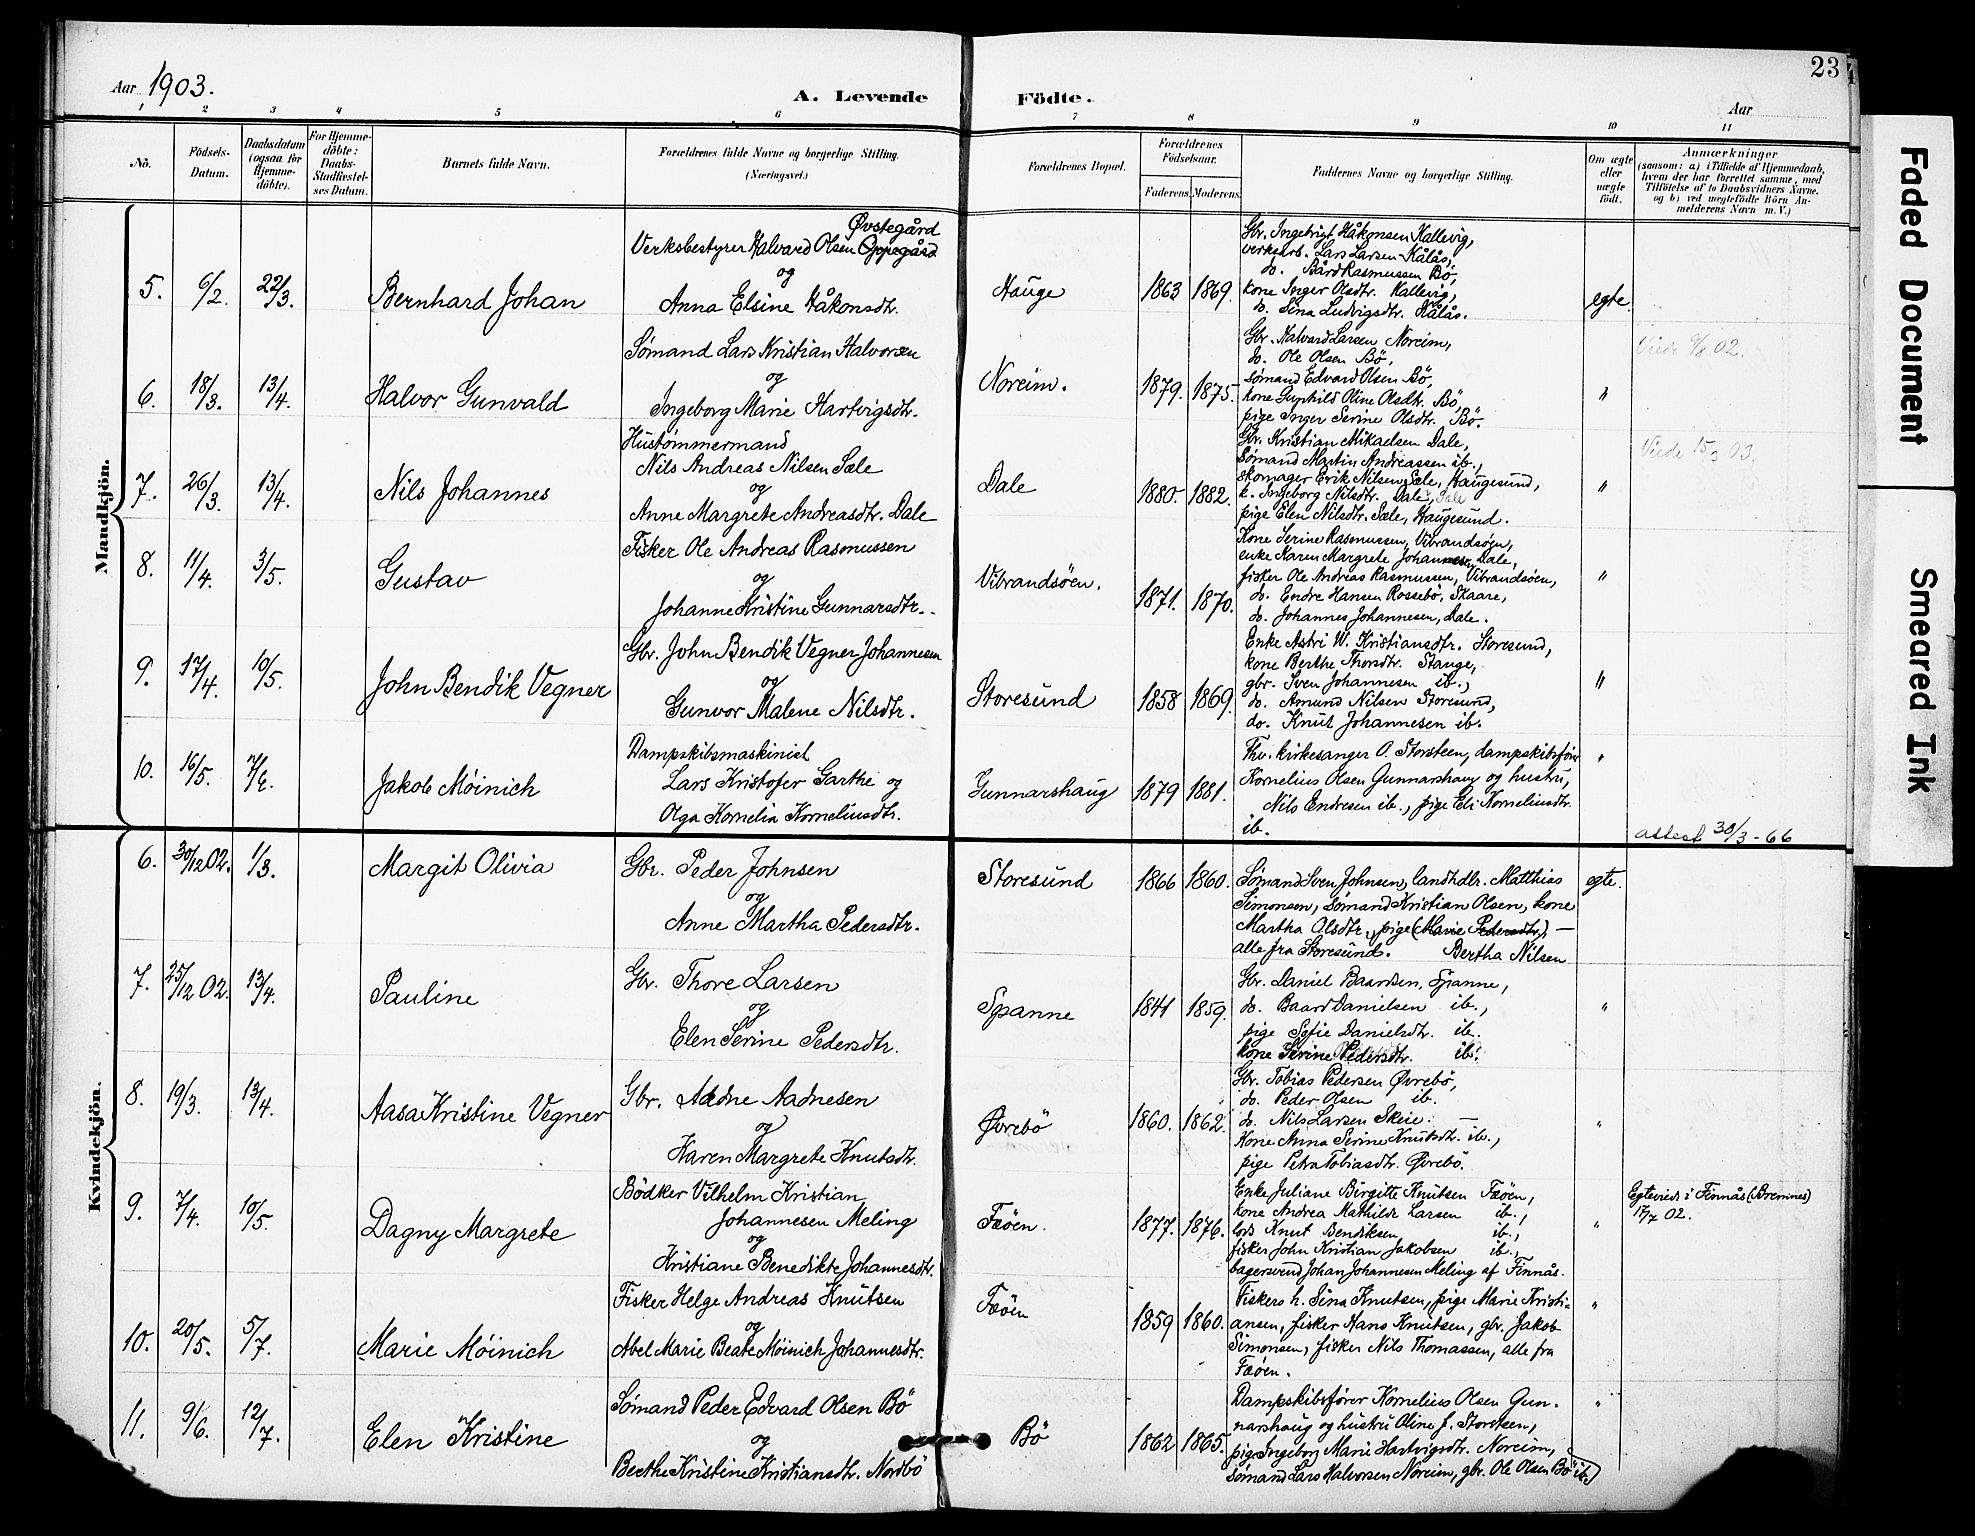 Aar 1903.
A. Levende
Födte.
Aar
23
1 2 3 4 5 6 7 8 9 10 11
No.
Födsels-Datum.
Daabsdatum (ogsaa for Hjemme-döbte).
For Hjemme-döbte: Daabs-Stadfæstel-ses Datum.
Barnets fulde Navn.
Forældrenes fulde Navne og borgerlige Stilling. (Næringsvei.)
Forældrenes Bopæl.
Forældrenes Födselsaar.
Faderens. Moderens.
Faddernes Navne og borgerlige Stilling.
Om ægte eller uægte födt.
Anmærkninger
(saasom: a) i Tilfælde af Hjemmedaab, hvem der har forrettet samme, med Tilföielse af to Daabsvidners Navne, og b) ved uægtefödte Börn An-melderens Navn m. V.)
Mandkjön.
5. 6/2. 22/3. Bernhard Johan
Øvstegård
Verksbestyrer Halvard Olsen Oppegård
og
Anna Elsine Håkonsdtr.
Hauge 1863 1869.
Gbr. Ingebrigt Håkonsen Kallevig,
verksarb. Lars Larsen Kålås,
do. Bård Rasmussen Bö,
kone Inger Olsdtr. Kallevig,
do. Sina Ludvigsdtr. Kålås.
egte.
6. 18/3. 13/4. Halvor Gunvald
Sømand Lars Kristian Halvorsen
og
Ingeborg Marie Hartvigsdtr.
Noreim. 1879. 1875.
Gbr. Halvard Larsen Noreim,
do. Ole Olsen Bö,
sømand Edvard Olsen Bö,
kone Gunhild Oline Olsdtr. Bö,
pige Inger Serine Olsdtr. Bö.
"
Viede 9/8 02.
7. 26/3. 13/4. Nils Johannes
Hustømmermand
Nils Andreas Nilsen Sæle
og
Anne Margrete Andreasdtr. Dale
Dale 1880. 1882.
Gbr. Kristian Mikaelsen Dale,
sømand Martin Andreassen ib.,
skomager Erik Nilsen Sæle, Haugesund,
k. Ingeborg Nilsdtr. Dale,
pige Elen Nilsdtr. Sæle, Haugesund.
"
Viede 15/3 03.
8. 11/4. 3/5. Gustav
Fisker Ole Andreas Rasmussen
og
Johanne Kristine Gunnarsdtr.
Vibrandsöen. 1871. 1870.
Kone Serine Rasmussen, Vibrandsöen,
enke Karen Margrete Johannesen, Dale,
fisker Ole Andreas Rasmussen, Vibrandsöen,
do. Endre Hansen Rossebö, Skaare,
do. Johannes Johannesen, Dale.
"
9. 17/4. 10/5. John Bendik Vegner
Gbr. John Bendik Vegner Johannesen
og
Gunvor Malene Nilsdtr.
Storesund 1858 1869.
Enke Astri W. Kristiansdtr. Storesund,
kone Berthe Thorsdtr. Stange,
gbr. Sven Johannesen ib.,
do. Amund Nilsen Storesund,
do. Knut Johannesen ib.
"
10. 16/5. 7/6. Jakob Møinich
Dampskibsmaskinist
Lars Kristofer Garthe og
Olga Kornelia Korneliusdtr.
Gunnarshaug 1879 1881.
Thv. kirkesanger O. Storsteen, dampskibsfører
Kornelius Olsen Gunnarshaug og hustru,
Nils Endresen ib., pige Eli Korneliusdtr.
ib.
"
attest 30/3-66
Kvindekjön.
6. 30/12 02. 1/3. Margit Olivia
Gbr. Peder Johnsen
og
Anne Martha Pedersdtr.
Storesund 1866 1860.
Sømand Sven Johnsen, landhdlr. Matthias
Simonsen, sømand Kristian Olsen, kone
Martha Olsdtr., pige (Marie Pedersdtr.) —
alle fra Storesund. Bertha Nilsen
egte.
7. 25/12 02. 13/4. Pauline
Gbr. Thore Larsen
og
Elen Serine Pedersdtr.
Spanne 1841 1859.
Gbr. Daniel Baardsen, Spanne,
do. Baard Danielsen ib.,
pige Sofie Danielsdtr. ib.
kone Serine Pedersdtr. ib.
"
8. 19/3. 13/4. Aasa Kristine Vegner
Gbr. Aadne Aadnesen
og
Karen Margrete Knutsdtr.
Øvrebö 1860. 1862.
Gbr. Tobias Pedersen Øvrebö,
do. Peder Olsen ib.
do. Nils Larsen Skeie. —
Kone Anna Serine Knutsdt. ib.,
pige Petra Tobiasdtr. Øvrebö.
"
9. 7/4. 10/5. Dagny Margrete
Bödker Vilhelm Kristian
Johannesen Meling
og
Kristiane Benedikte Johannesdtr.
Fæöen. 1877. 1876.
Enke Juliane Birgitte Knutsen Fæöen,
kone Andrea Mathilde Larsen ib.,
lods Knut Bendiksen ib.,
fisker John Kristian Jakobsen ib.,
bagersvend Johan Johannesen Meling af Finnås.
"
Egteviede i Finnås (Bremnes)
17/7 02.
10. 20/5. 5/7. Marie Möinich
Fisker Helge Andreas Knutsen
og
Abel Marie Beate Möinich Johannesdtr.
Fæöen 1859 1860.
Fiskers h. Sina Knutsen, pige Marie Kristi-
ansen, fisker Hans Knutsen, gbr. Jakob
Simonsen, fisker Nils Thomassen, alle fra
Fæöen.
"
11. 9/6. 12/7. Elen Kristine
Sømand Peder Edvard Olsen Bö
og
Berthe Kristine Kristiansdtr. Nordbö
Bö 1862 1865.
Dampskibsfører Kornelius Olsen Gun-
narshaug og hustru Oline f. Storsteen,
pige Ingeborg Marie Hartvigsdtr. Noreim,
sømand Lars Halvorsen Noreim, gbr. Ole Olsen Bö ib.
"
Faded Document
Smeared Ink